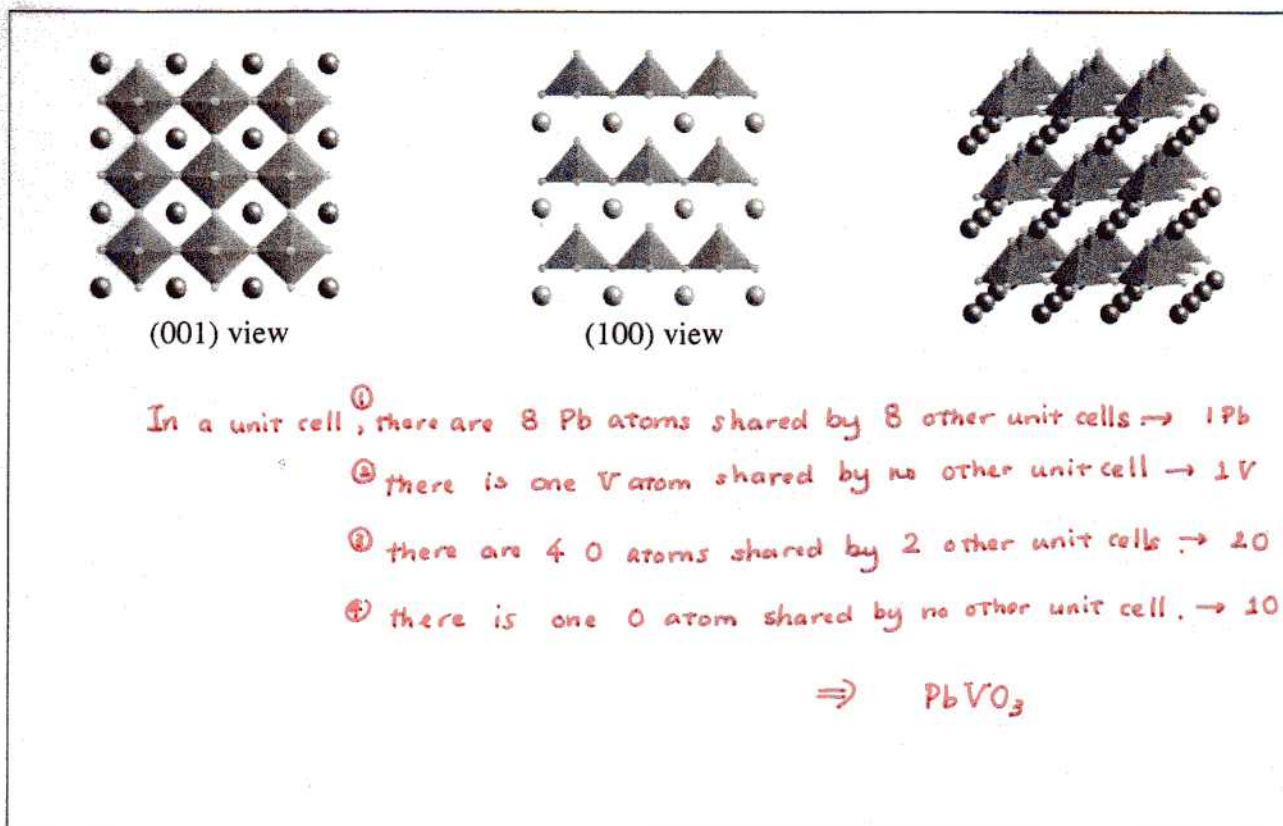 (001) view
(100) view
In a unit cell, ① there are 8 Pb atoms shared by 8 other unit cells → 1Pb
② there is one V atom shared by no other unit cell → 1V
③ there are 4 O atoms shared by 2 other unit cells. → 2O
④ there is one O atom shared by no other unit cell. → 1O
⇒ PbVO₃